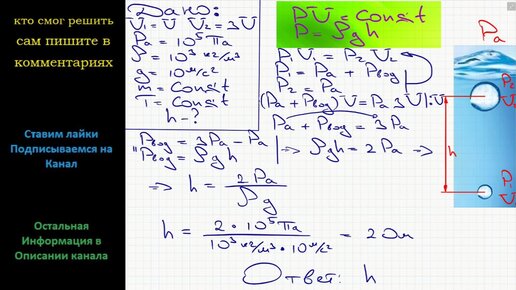 кто смог решить
сам пишите в
комментариях
Ставим лайки
Подписываемся на
Канал
Остальная
Информация в
Описании канала
Дано:
V₁ = V V₂ = 3V
Pa = 10⁵ Па
ρ = 10³ кг/м³
g = 10 м/с²
m = const
T = const
h - ?
PV = const
P = ρgh
P₁V₁ = P₂V₂
P₁ = Pa + Pвод
P₂ = Pa
(Pa + Pвод) V = Pa 3V |: V
Pa + Pвод = 3Pa
Pвод = 3Pa - Pa
Pвод = ρgh
|⇒ ρgh = 2Pa ⇒
⇒ h = 2Pa / ρg
h = 2 · 10⁵ Па / 10³ кг/м³ · 10 м/с² = 20 м
Ответ: h
Pa
P₂
V₂
h
P₁
V₁